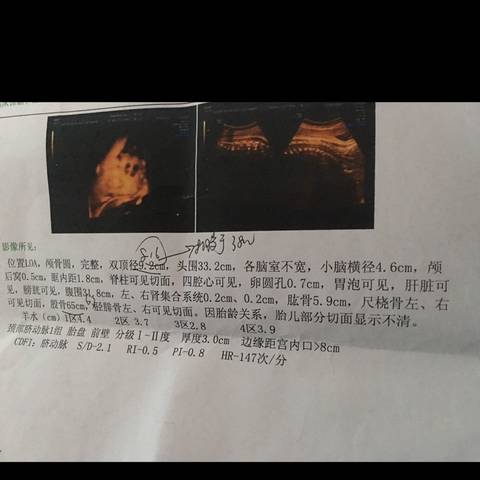 影像所见:
位置LOA, 颅骨圆, 完整, 双顶径9.2cm, 头围33.2cm, 各脑室不宽, 小脑横径4.6cm, 颅
后窝0.5cm, 眶内距1.8cm, 脊柱可见切面, 四腔心可见, 卵圆孔0.7cm, 胃泡可见, 肝脏可
见, 膀胱可见, 腹围31.8cm, 左、右肾集合系统0.2cm、0.2cm, 肱骨5.9cm, 尺桡骨左、右
可见切面, 股骨65cm, 胫腓骨左、右可见切面。因胎龄关系, 胎儿部分切面显示不清。
羊水(cm) 1区4.4 2区 3.7 3区2.8 4区3.9
颈部脐动脉1组 胎盘 前壁 分级Ⅰ-Ⅱ度 厚度3.0cm 边缘距宫内口>8cm
CDFI: 脐动脉 S/D-2.1 RI-0.5 PI-0.8 HR-147次/分